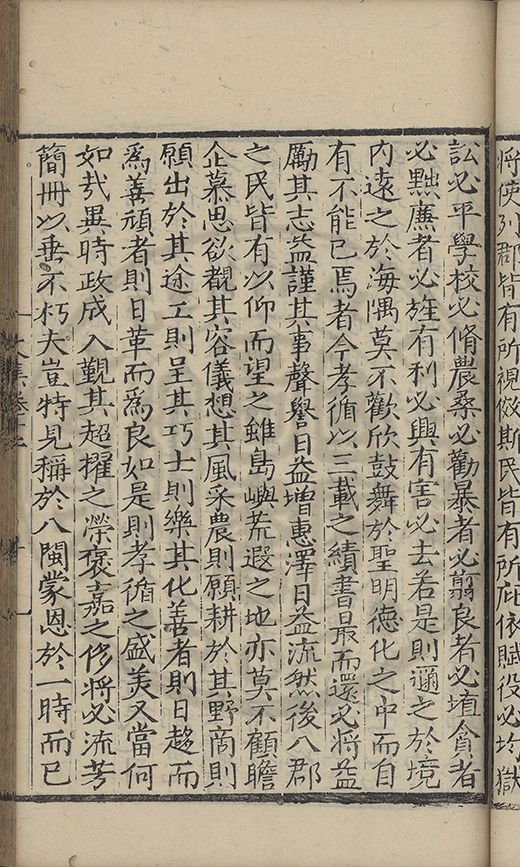 將使列郡皆有所視傚斯民皆有所庇依賦役必均獄
訟必平學校必脩農桑必勸暴者必翦良者必植貪者
必黜廉者必旌有利必興有害必去若是則邇之於境
内遠之於海隅莫不歡欣鼓舞於聖明德化之中而自
有不能已焉者今孝循以三載之績書最而還必將益
勵其志益謹其事聲譽日益增惠澤日益流然後八郡
之民皆有以仰而望之雖島嶼荒遐之地亦莫不顒瞻
企慕思欲覩其容儀想其風采農則願耕於其野商則
願出於其途工則呈其巧士則樂其化善者則日趨而
爲善頑者則日革而爲良如是則孝循之盛美又當何
如㢤異時政成入覲其超擢之榮褒嘉之侈將必流芳
簡冊以垂不朽夫豈特見稱於八閩蒙恩於一時而已
文集卷十二